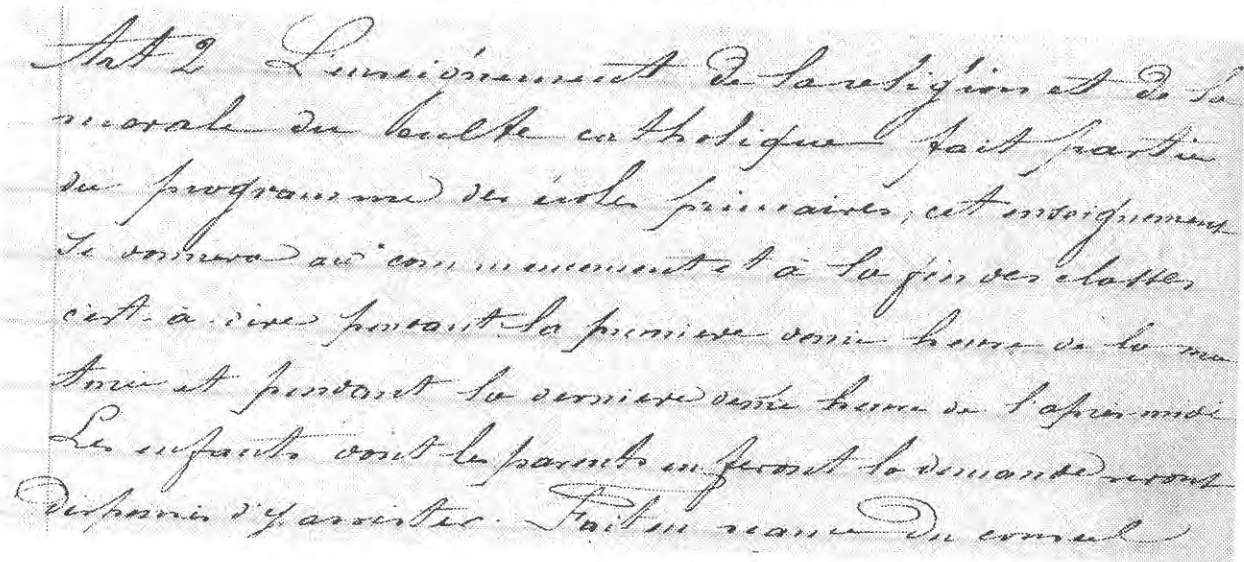 Art 2 L'enseignement de la religion et de la
morale du culte catholique fait partie
du programme des écoles primaires, cet enseignement
se donnera au commencement et à la fin des classes
c'est-à-dire pendant la premiere demie heure de la ma
tinée et pendant la derniere demie heure de l'après midi
Les enfants dont les parents en feront la demande seront
dispensés d'y assister. Fait en séance du conseil